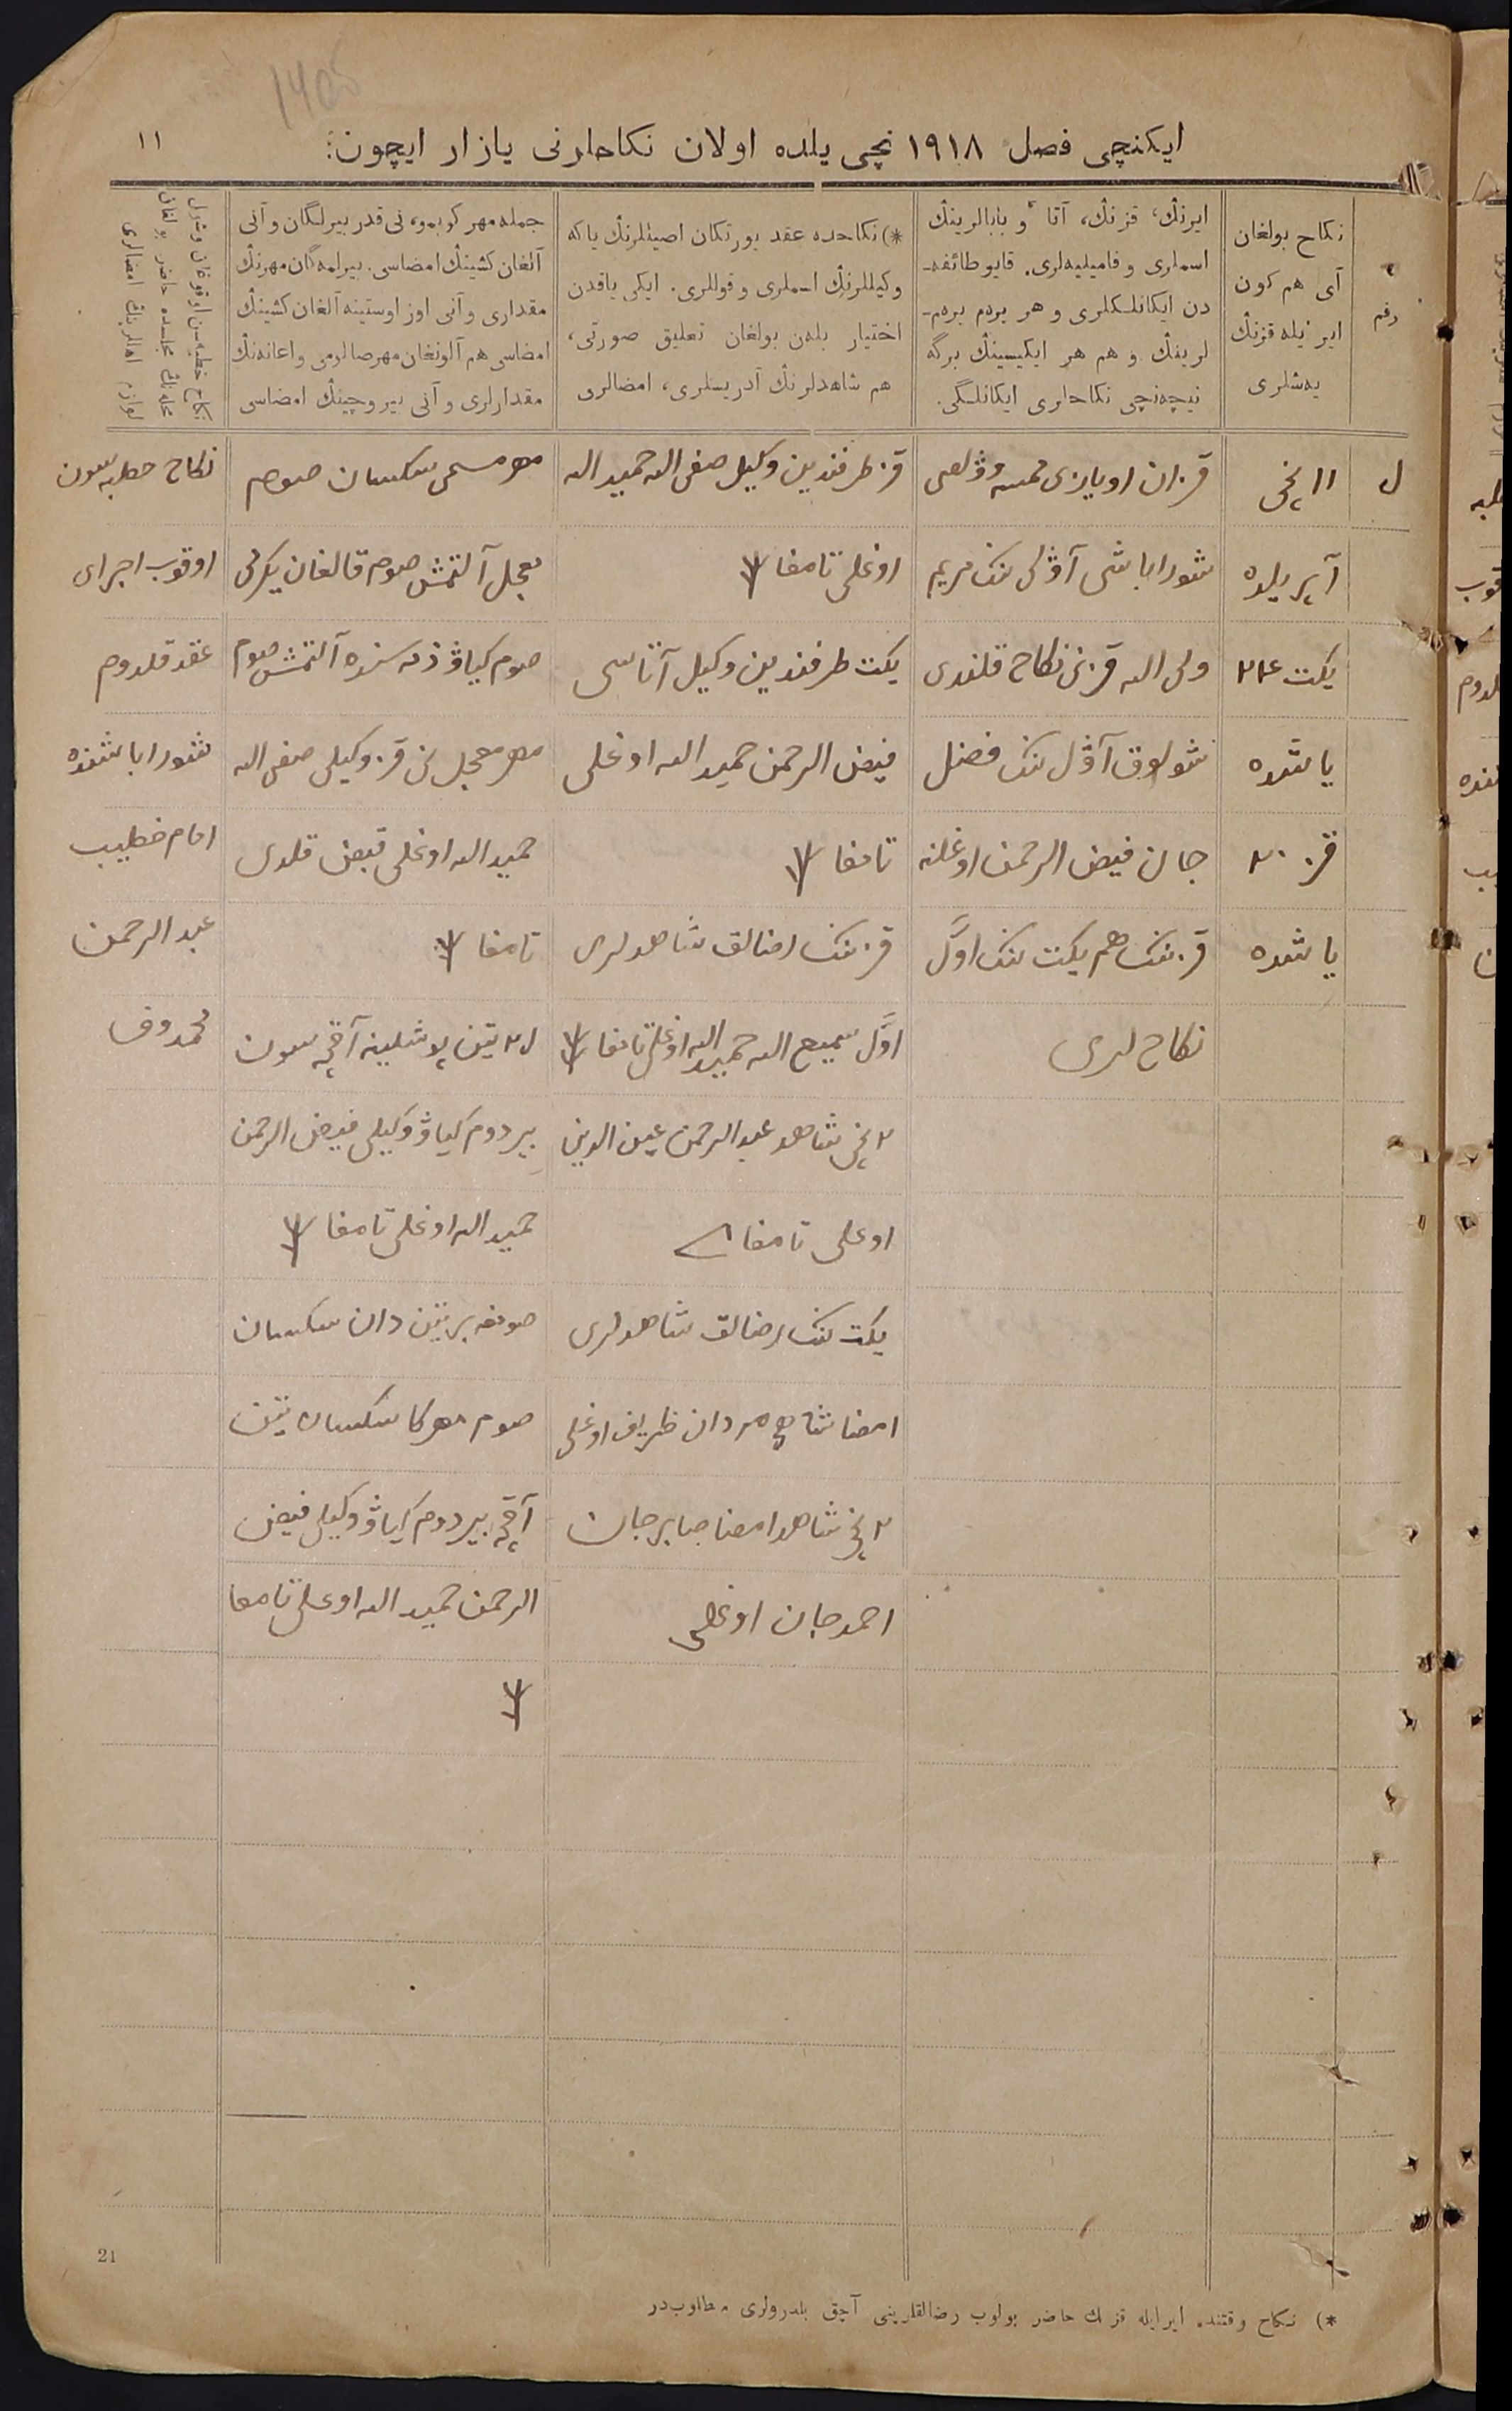 ایکنچی فصل ١٩١٨ نچی یلده اولان نکاحلرنی یازار ایچون:
١١
رقم
نکاح بولغان
آی هم کون
ایر ئیله قزنڭ
یەشلری
ایرنڭ، قزنڭ، آتا و بابالرینڭ
اسملری و فامیلیەلری. قایو طائفه‌ـ
دن ایکانلکلری و هر بردم بردم‌ـ
لرینڭ و هم هر ایکیسینڭ برگه
نیچەنچی نکاحلری ایکانلگی.
*) نکاحده عقد یورتکان اصیللرنڭ یاکه
وکیللرنڭ اسملری و قوللری. ایکی یاقدن
اختیار بلەن بولغان تعلیق صورتی،
هم شاهدلرنڭ آدریسلری، امضالری
جمله مهر کوبمو، نی قدر بیرلگان و آنی
آلغان کشینڭ امضاسی. بیرلمەگان مهرنڭ
مقداری و آنی اوز اوستینه آلغان کشینڭ
امضاسی هم آلونغان مهرصالومی و اعانەنڭ
مقدارلری و آنی بیروچینڭ امضاسی
نکاح خطبەسن اوقوغان و شول
١١ نچی
آپریلده
یکت ٢٤
یاشده
قز ٢٠
یاشده
قزان اویازی
شورا باشی آۋلی ننک مریم
ولی الله قزنی نکاح قلندی
شولوق آۋل ننک فضل
جان فیض الرحمن اوغلنه
قزننک هم یکت ننک اوّل
نکاح لری
قز طرفندین وکیل صفی الله حمید الله
اوغلی تامغا
یکت طرفندین وکیل آتاسی
فیض الرحمن حمید الله اوغلی
تامغا
قزننک رضالق شاهدلری
اوّل سمیع الله حمید الله اوغلی تامغا
٢ نچی شاهد عبد الرحمن عین الدین
اوغلی تامغا
یکت ننک رضالق شاهدلری
امضا شاه مردان ظریف اوغلی
٢ نچی شاهد امضا صابرجان
احمدجان اوغلی
مهر مسمی سکسان صوم
معجل آلتمش صوم قالغان یکرمی
صوم کیاۋ ذمه سنده آلتمش صوم
مهر معجل نی قز وکیلی صفی الله
حمید الله اوغلی قبض قلدی
تامغا
آقچه سون
بیردوم کیاۋ وکیلی فیض الرحمن
حمید الله اوغلی تامغا
صومغه بر تین دان سکسان
صوم مهرکا سکسان تین
آقچه بیردوم کیاۋ وکیلی فیض
الرحمن حمید الله اوغلی تامغا
نکاح خطبه سون
اوقوب اجرای
عقد قلدوم
شورا باشنده
امام خطیب
عبد الرحمن
محمدوف
21
*) نکاح وقتنده ایرایله قزنڭ حاضر بولوب رضالقلرینی آچق بلدرولری مطلوب‌در